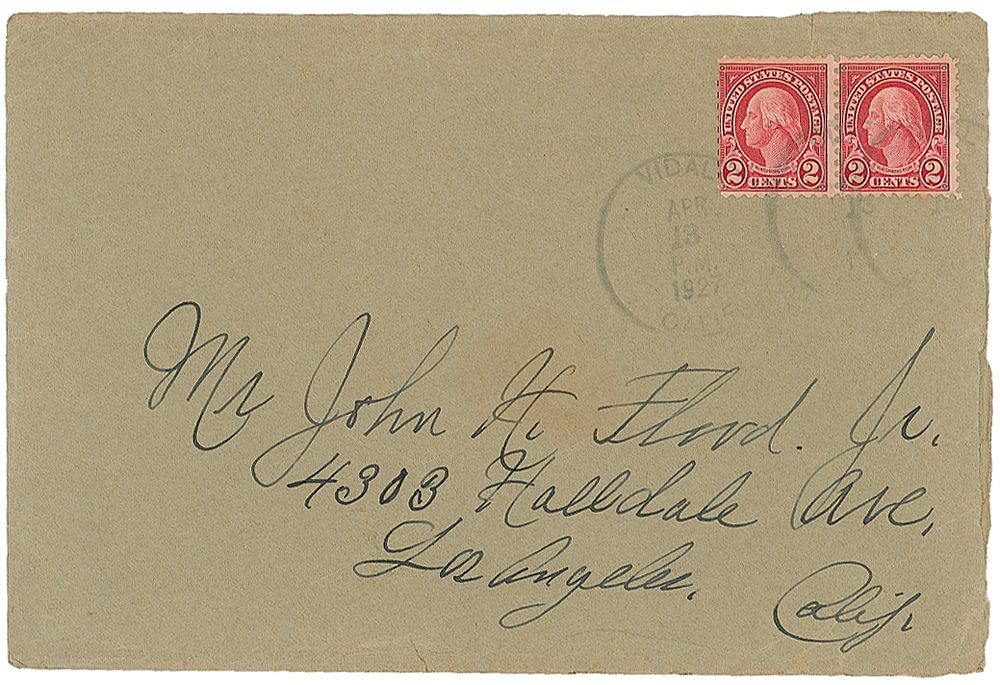 UNITED STATES POSTAGE UNITED STATES POSTAGE
WASHINGTON WASHINGTON
2 CENTS 2 2 CENTS 2
VIDAL
APR
13
P.M.
1927
CALIF
13
Mr John H. Flood. Jr.
4303 Halldale Ave,
Los Angeles,
Calif.